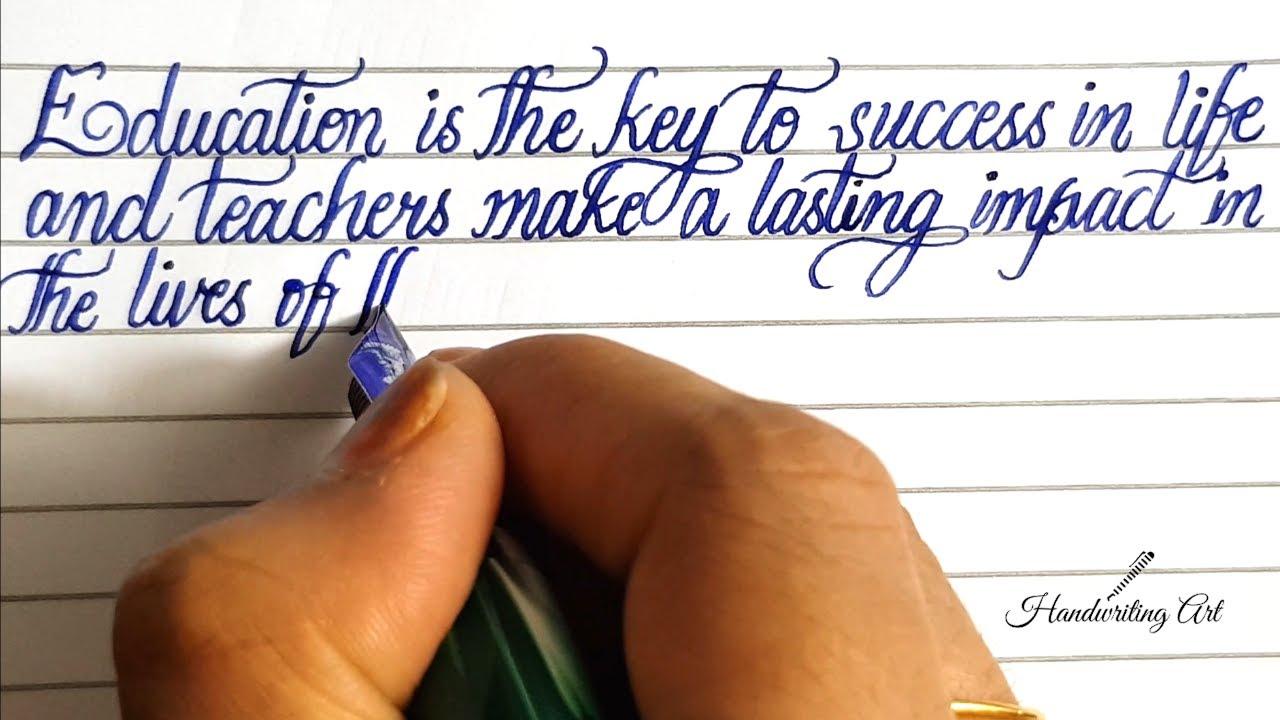 Education is the key to success in life
and teachers make a lasting impact in
the lives of
Handwriting Art